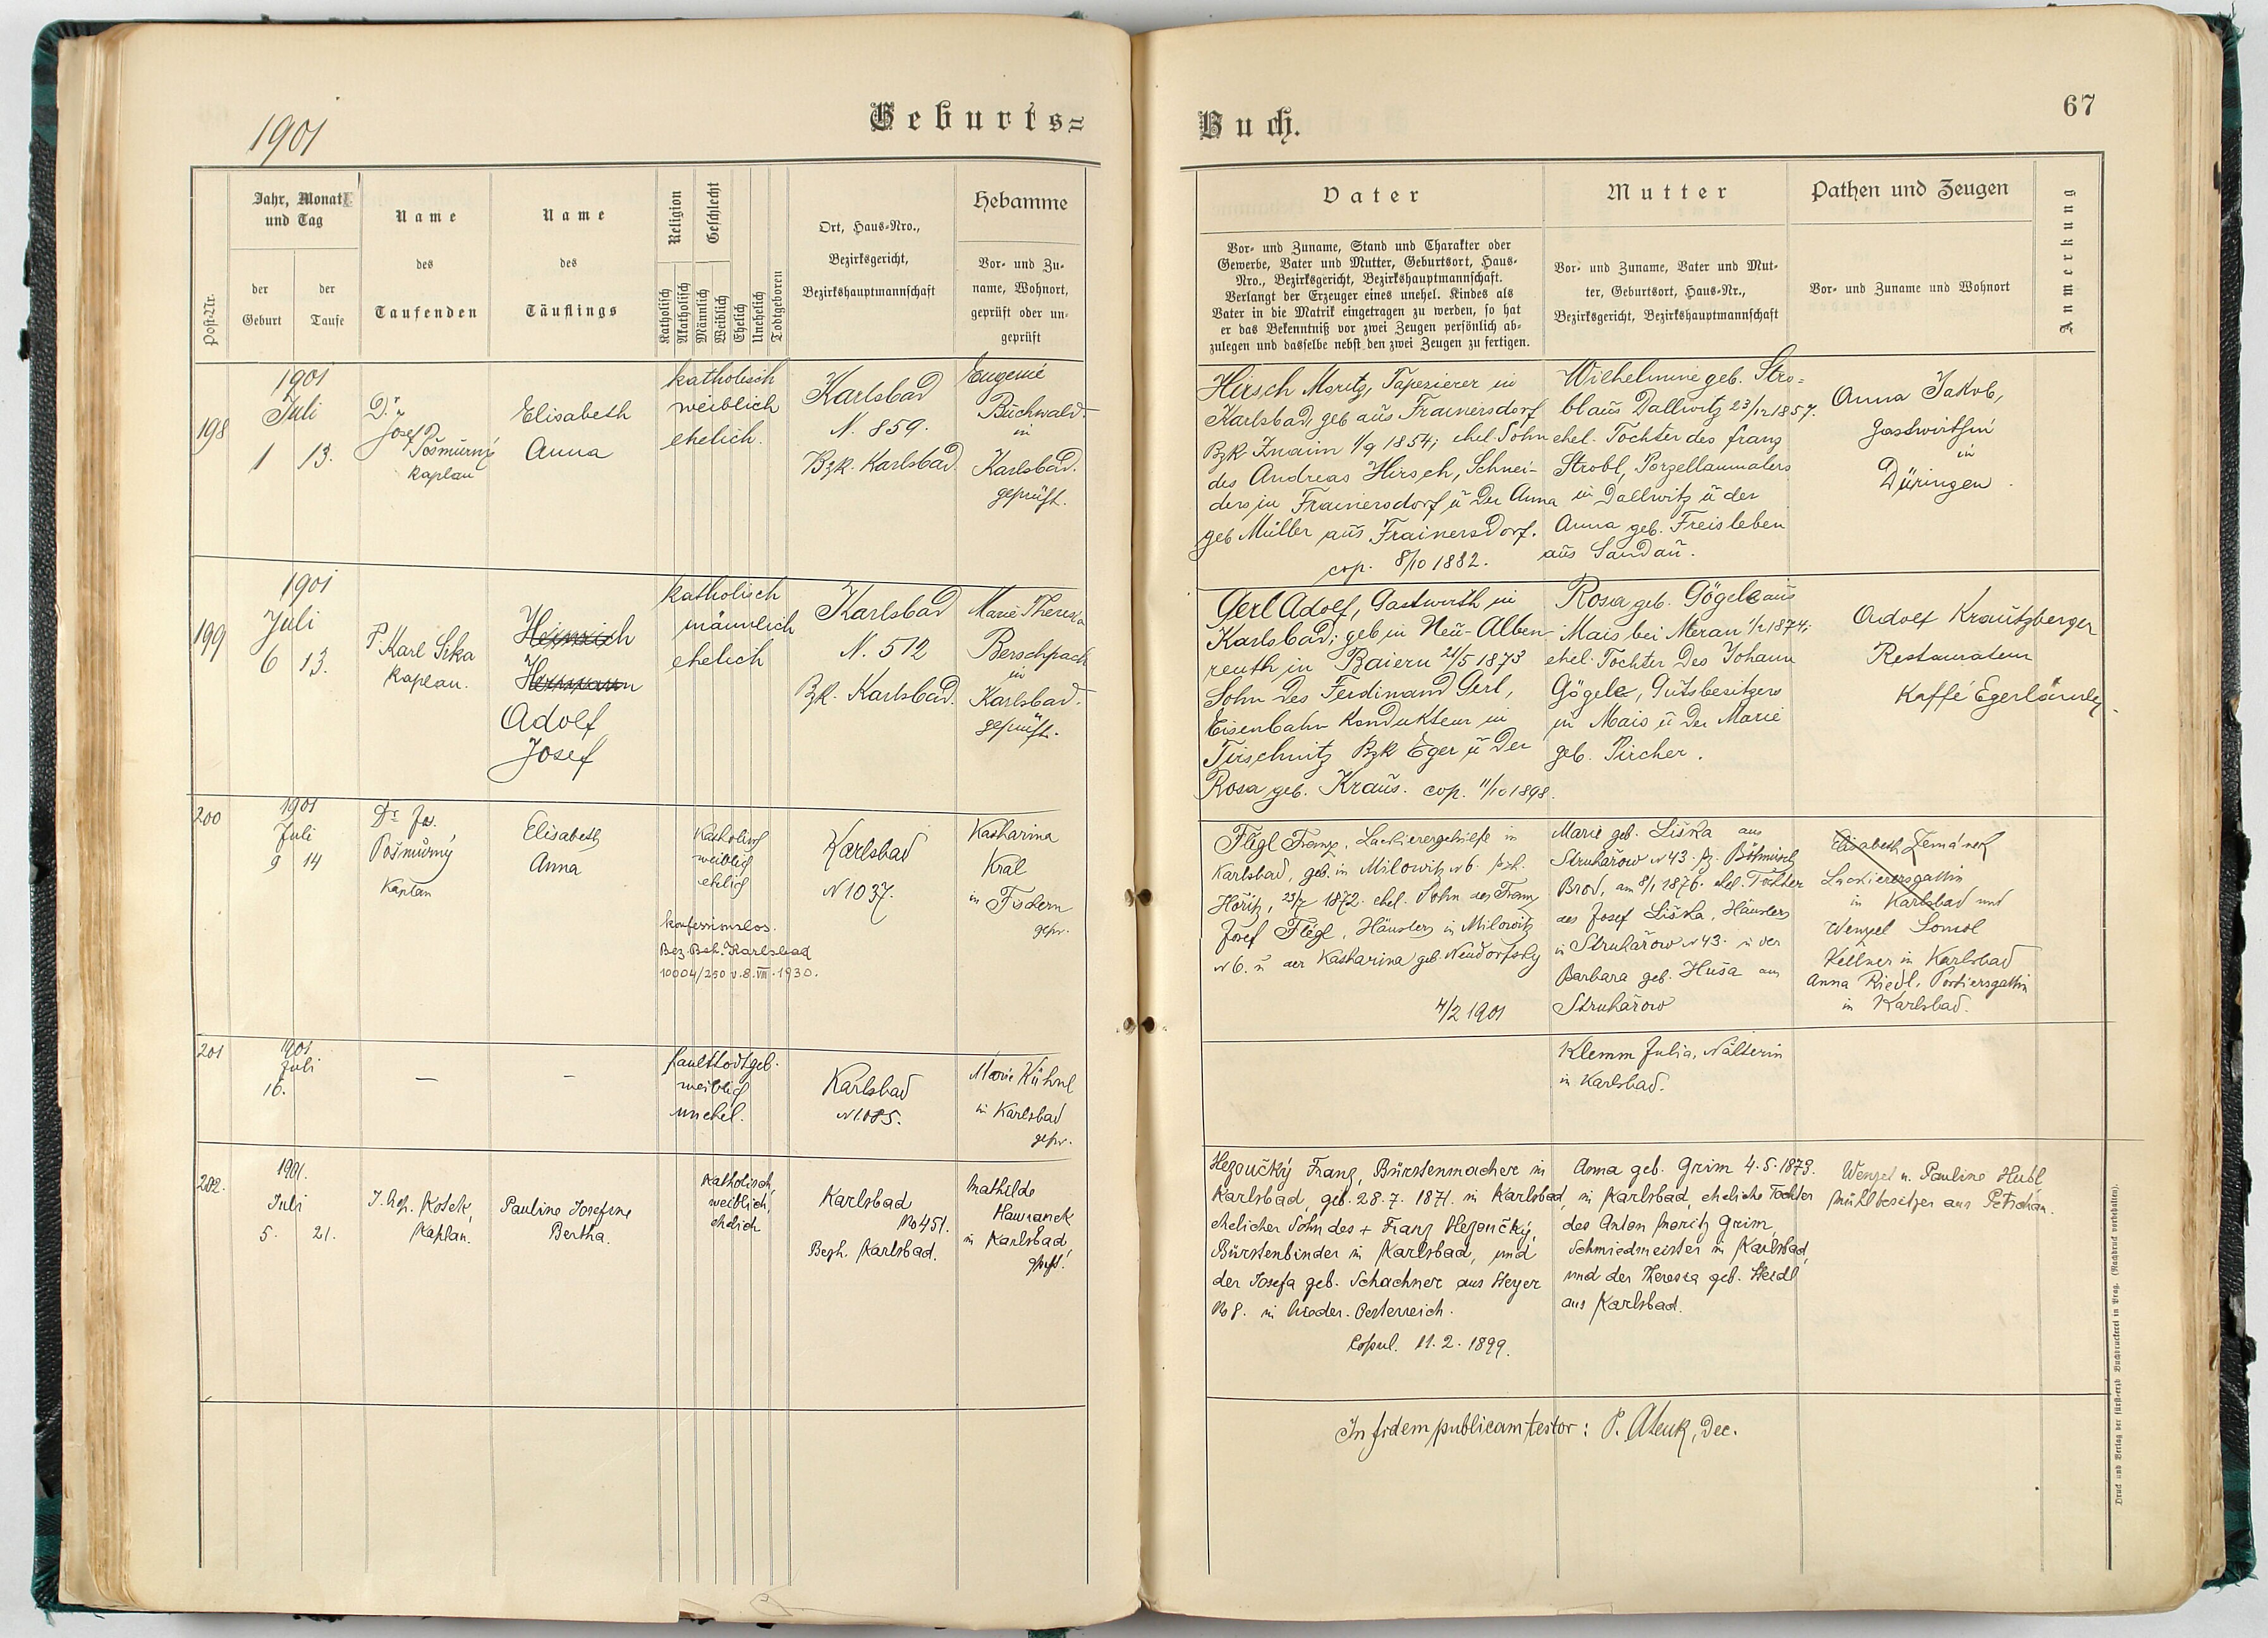 1901
Geburts=
Buch.
67
Post-Nr.
Jahr, Monat
und Tag
der
Geburt
der
Taufe
Name
des
Taufenden
Name
des
Täuflings
Religion
Geschlecht
Katholisch
Akatholisch
Männlich
Weiblich
Ehelich
Unehelich
Todtgeboren
Ort, Haus-Nro.,
Bezirksgericht,
Bezirkshauptmannschaft
Hebamme
Vor- und Zu-
name, Wohnort,
geprüft oder un-
geprüft
Vater
Vor- und Zuname, Stand und Charakter oder
Gewerbe, Vater und Mutter, Geburtsort, Haus-
Nro., Bezirksgericht, Bezirkshauptmannschaft.
Verlangt der Erzeuger eines unehel. Kindes als
Vater in die Matrik eingetragen zu werden, so hat
er das Bekenntniß vor zwei Zeugen persönlich ab-
zulegen und dasselbe nebst den zwei Zeugen zu fertigen.
Mutter
Vor- und Zuname, Vater und Mut-
ter, Geburtsort, Haus-Nr.,
Bezirksgericht, Bezirkshauptmannschaft
Pathen und Zeugen
Vor- und Zuname und Wohnort
Anmerkung
198
1901
Juli
1 13.
Dr.
Josef
Pošmurný
Kaplan
Elisabeth
Anna
katholisch
weiblich
ehelich.
Karlsbad
N. 859.
Bzk. Karlsbad.
Eugenie
Buchwald
in
Karlsbad.
geprüft.
Hirsch Moritz, Tapezierer in
Karlsbad, geb aus Frainersdorf
Bzk Znaim 1/9 1854; ehel. Sohn
des Andreas Hirsch, Schnei-
ders in Frainersdorf u der Anna
geb Müller aus Frainersdorf.
cop. 8/10 1882.
Wilhelmine geb. Stro-
bl aus Dallwitz 23/12 1857.
ehel. Tochter des Franz
Strobl, Porzellanmalers
in Dallwitz u der
Anna geb. Freisleben
aus Sandau.
Anna Jakob,
Gastwirthin
in
Düringen.
199
1901
Juli
6 13.
P. Karl Sika
Kaplan.
Heinrich
Hermann
Adolf
Josef
katholisch
männlich
ehelich
Karlsbad
N. 512
Bzk. Karlsbad.
Marie Theresia
in
Karlsbad.
geprüft.
Gerl Adolf, Gastwirth in
Karlsbad; geb in Neu-Alben-
reuth in Baiern 21/5 1873
Sohn des Ferdinand Gerl,
Eisenbahn Kondukteur in
Tirschnitz Bzk Eger u der
Rosa geb. Kraus. cop. 11/10 1898.
Rosa geb. Gögele aus
Mais bei Meran 1/2 1874;
ehel. Tochter des Johann
Gögele, Gutsbesitzers
in Mais u der Marie
geb. Pircher.
Adolf Krautzberger
Restaurateur
Kaffé Egerländer
200
1901
Juli
9 14
Dr. Jos.
Pošmurný
Kaplan
Elisabeth
Anna
Katholisch
weiblich
ehlich
konfessionslos.
Bez. Beh. Karlsbad
10004/250 v. 8. VII. 1930.
Karlsbad
N 1037.
Katharina
Kral
in Fischern
gepr.
Flégl Franz, Lackierergehilfe in
Karlsbad, geb. in Milowitz N 6. Bzk.
Hořitz, 23/7 1872. ehel. Sohn des Franz
Josef Flégl, Häuslers in Milowitz
N 6. u der Katharina geb. Neudorfsky
4/2 1901
Marie geb. Liška aus
Struhařow N 43. Bz. Böhmisch
Brod, am 8/1 1876. ehel. Tochter
des Josef Liška, Häuslers
in Struhařow N 43. u der
Barbara geb. Huša aus
Struhařow
Elisabeth Zemánek
Lackierersgattin
in Karlsbad und
Wenzel
Kellner in Karlsbad
Anna Riedl, Portiersgattin
in Karlsbad.
201
1901
Juli
16.
—
—
faulttodtgeb.
weiblich
unehel.
Karlsbad
N 1085.
Marie Kühnl
in Karlsbad
gepr.
Klemm Julia, Nätterin
in Karlsbad.
202.
1901.
Juli
5. 21.
Kosek,
Kaplan.
Pauline Josefine
Bertha.
Katholisch,
weiblich,
ehelich
Karlsbad
No 451.
Bezh. Karlsbad.
Mathilde
Hawranek
in Karlsbad,
gepft.
Hezoučký Franz, Bürstenmacher in
Karlsbad, geb. 28. 7. 1871. in Karlsbad,
ehelicher Sohn des + Franz Hezoučký,
Bürstenbinder in Karlsbad, und
der Josefa geb. Schachner aus Steyer
No 8. in Nieder-Oesterreich.
Copul. 11. 2. 1899.
Anna geb. Grim 4. 5. 1873.
in Karlsbad, eheliche Tochter
des Anton Moritz Grim,
Schmiedmeister in Karlsbad,
und der Theresia geb. Heidl
aus Karlsbad.
Wenzel u. Pauline Hubl
Mühlbesitzer aus Petschau.
In fidem publicam testor: P. , Dec.
Druck und Verlag der fürst-erzb Buchdruckerei in Prag. (Nachdruck vorbehalten).